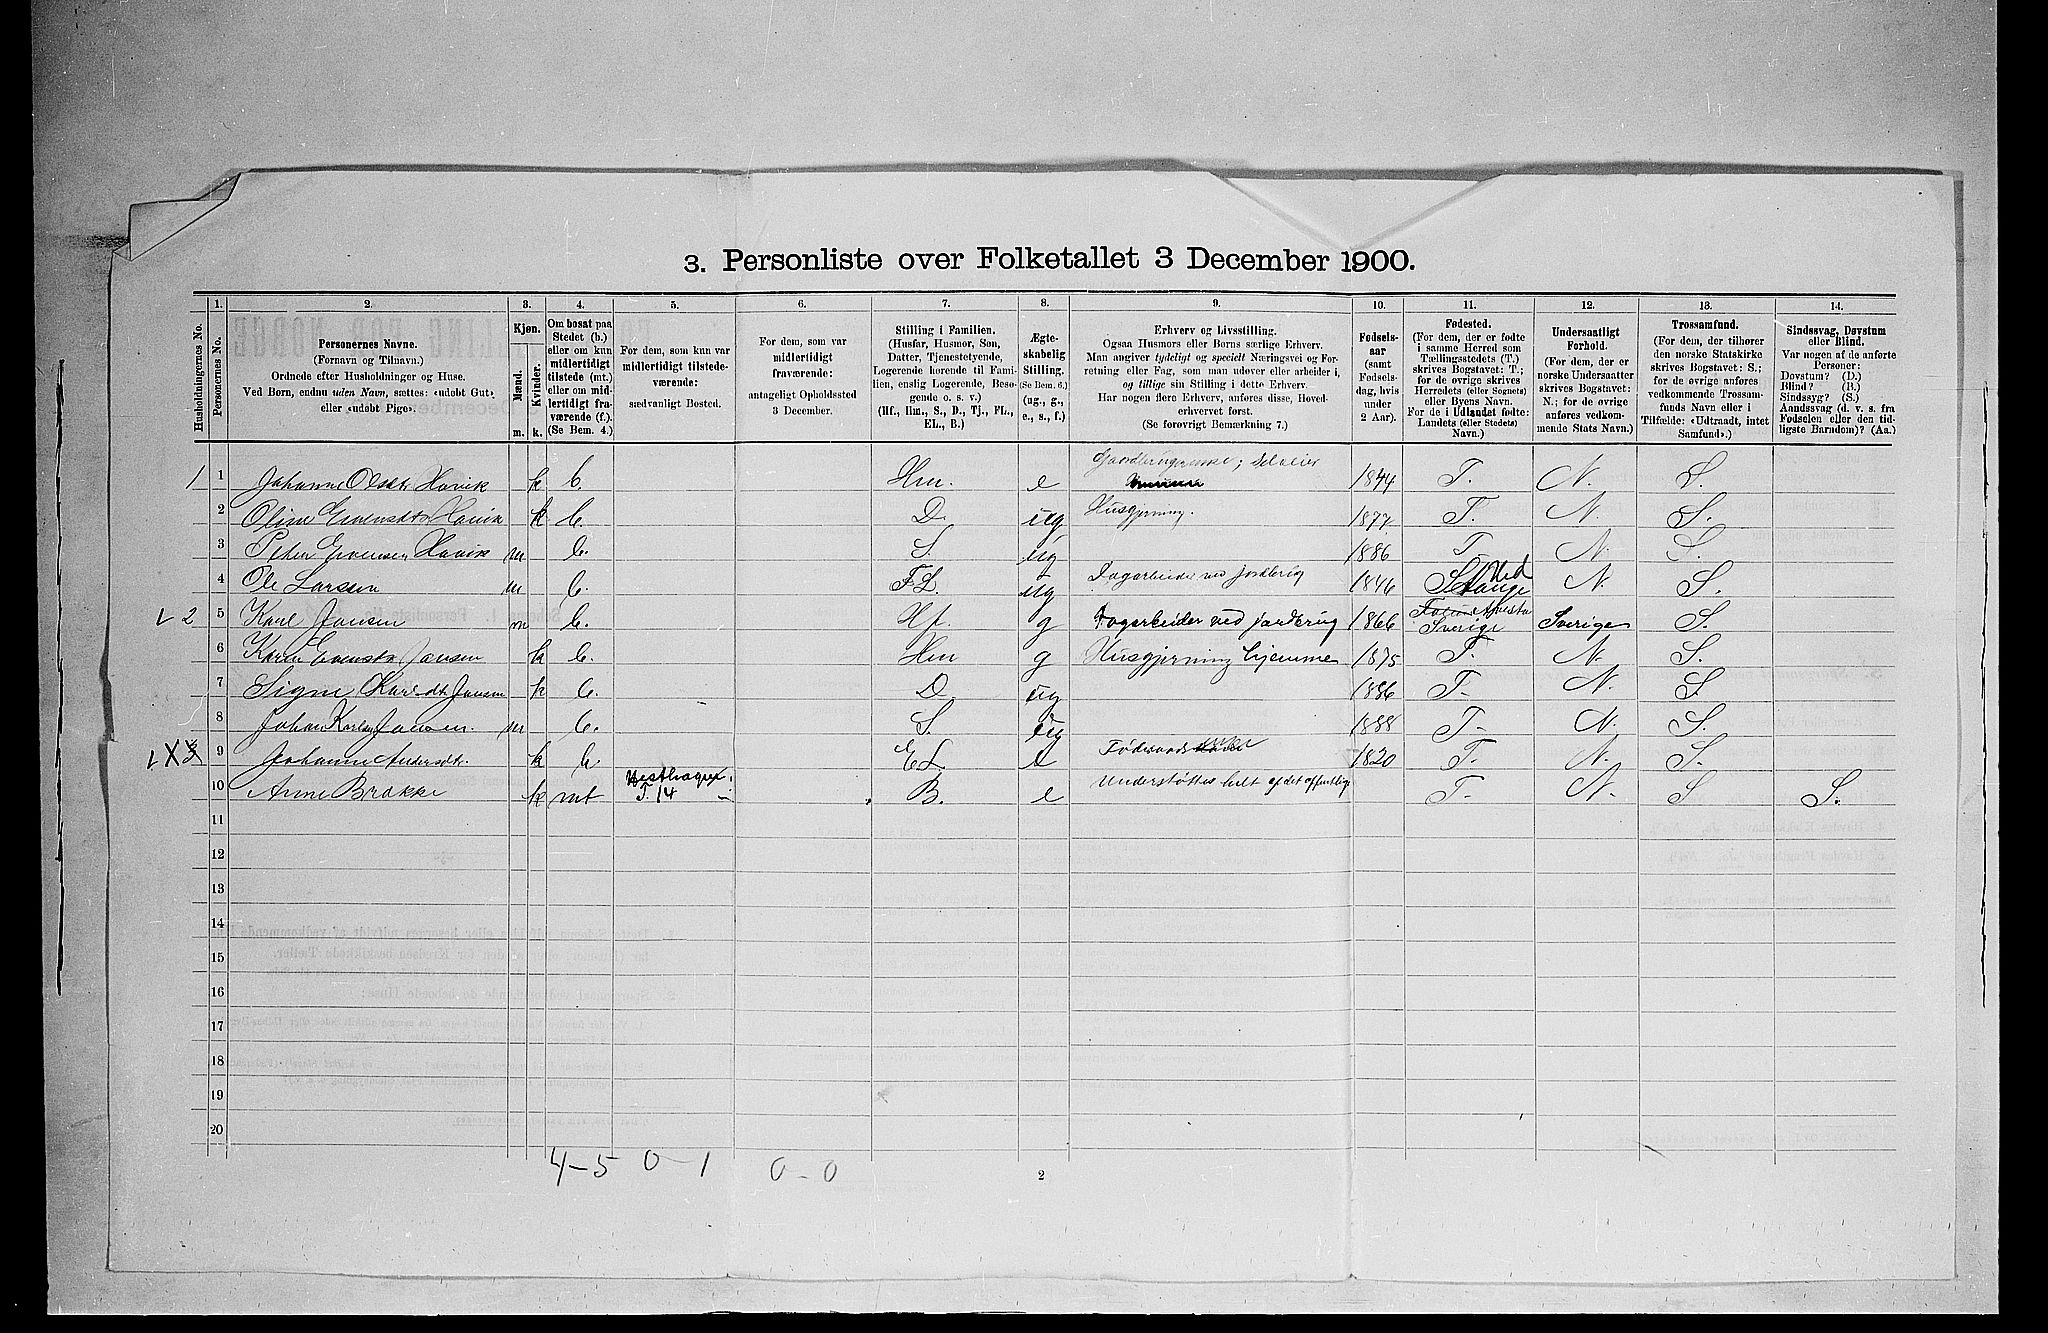 3. Personliste over Folketallet 3 December 1900.
Husholdningernes No.
1.
Personernes No.
2.
Personernes Navne.
(Fornavn og Tilnavn.)
Ordnede efter Husholdninger og Huse.
Ved Børn, endnu uden Navn, sættes: «udøbt Gut»
eller «udøbt Pige».
3.
Kjøn.
Mænd. Kvinder.
m. k.
4.
Om bosat paa
Stedet (b.)
eller om kun
midlertidigt
tilstede (mt.)
eller om mid-
lertidigt fra-
værende (f.)
(Se Bem. 4.)
5.
For dem, som kun var
midlertidigt tilstede-
værende:
sædvanligt Bosted.
6.
For dem, som var
midlertidigt
fraværende:
antageligt Opholdssted
3 December.
7.
Stilling i Familien.
(Husfar, Husmor, Søn,
Datter, Tjenestetyende,
Logerende hørende til Fami-
lien, enslig Logerende, Besø-
gende o. s. v.)
(Hf., Hm., S., D., Tj., FL.,
EL., B.)
8.
Ægte-
skabelig
Stilling.
(Se Bem. 6.)
(ug., g.,
e., s., f.)
9.
Erhverv og Livsstilling.
Ogsaa Husmors eller Børns særlige Erhverv.
Man angiver tydeligt og specielt Næringsvei og For-
retning eller Fag, som man udøver eller arbeider i,
og tillige sin Stilling i dette Erhverv.
Har nogen flere Erhverv, anføres disse, Hoved-
erhvervet først.
(Se forøvrigt Bemærkning 7.)
10.
Fødsels-
aar
(samt
Fødsels-
dag, hvis
under
2 Aar).
11.
Fødested.
(For dem, der er fødte
i samme Herred som
Tællingsstedets (T.)
skrives Bogstavet: T.;
for de øvrige skrives
Herredets (eller Sognets)
eller Byens Navn.
For de i Udlandet fødte:
Landets (eller Stedets)
Navn.)
12.
Undersaatligt
Forhold.
(For dem, der er
norske Undersaatter
skrives Bogstavet:
N.; for de øvrige
anføres vedkom-
mende Stats Navn.)
13.
Trossamfund.
(For dem, der tilhører
den norske Statskirke
skrives Bogstavet: S.;
for de øvrige anføres
vedkommende Trossam-
funds Navn eller i
Tilfælde: «Udtraadt, intet
Samfund».)
14.
Sindssvag, Døvstum
eller Blind.
Var nogen af de anførte
Personer:
Døvstum? (D.)
Blind? (B.)
Sindssyg? (S.)
Aandssvag (d. v. s. fra
Fødselen eller den tid-
ligste Barndom)? (Aa.)
1 1 Johanne Olsdtr Hovik k b. Hm. e 1844 T. N. S.
2 Oline Evensdtr Hovik k b. D. ug Husgjerning. 1877 T. N. S.
3 Peter Evensen Hovik m b. S. ug 1886 T. N. S.
4 Ole Larsen m b. FL. ug Dagarbeider ved jordbrug 1846 Stange Hed N. S.
2 5 Karl Jansen m b. Hf. g Dagarbeider ved jordbrug 1866 Sverige Sverige S.
6 Karen Evensdtr Jansen k b. Hm g Husgjerning hjemme 1875 T. N. S.
7 Signe Karlsdtr Jansen k b. D. ug 1896 T. N. S.
8 Johan Karlsen Jansen. m b. S. ug 1898 T. N. S.
X 3 9 Johanne Andersdtr. k b EL e Føderaads 1820 T. N. S.
10 Anne Brakke k mt Vesthagen T. 14 B. e Understøttes helt af det offentlige T. N. S S.
11
12
13
14
15
16
17
18
19
20
4-5 0-1 0-0
2